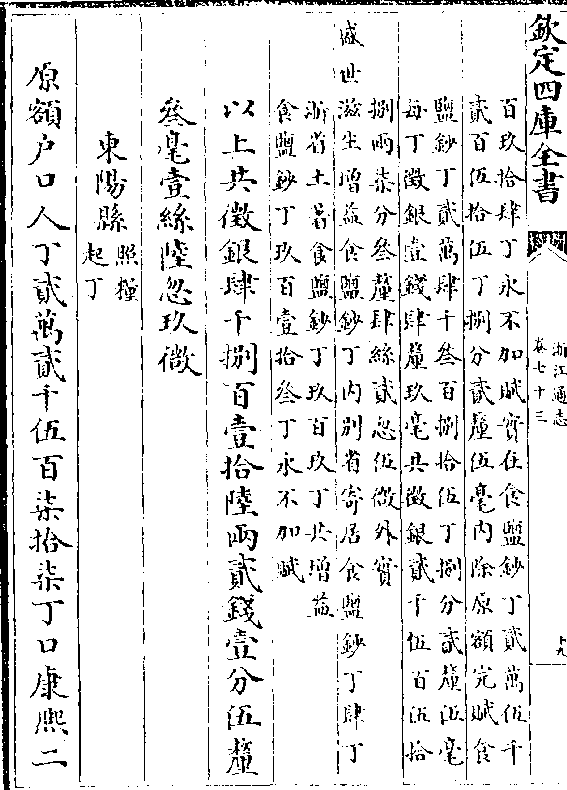 欽定四庫全書
浙江通志
卷七十三
十九
百玖拾肆丁永不加賦實在食鹽鈔丁貳萬伍千
貳百伍拾伍丁捌分貳釐伍毫內除原額完賦食
鹽鈔丁貳萬肆千叁百捌拾伍丁捌分貳釐伍毫
每丁徵銀壹錢肆釐玖毫共徵銀貳千伍百伍拾
捌兩柒分叁釐肆絲貳忽伍微外實
盛世滋生增益食鹽鈔丁內別省寄居食鹽鈔丁肆丁
浙省土著食鹽鈔丁玖百玖丁共增益
食鹽鈔丁玖百壹拾叁丁永不加賦
以上共徵銀肆千捌百壹拾陸兩貳錢壹分伍釐
叁毫壹絲陸忽玖微
東陽縣照糧
起丁
原額户口人丁貳萬貳千伍百柒拾柒丁口康熙二